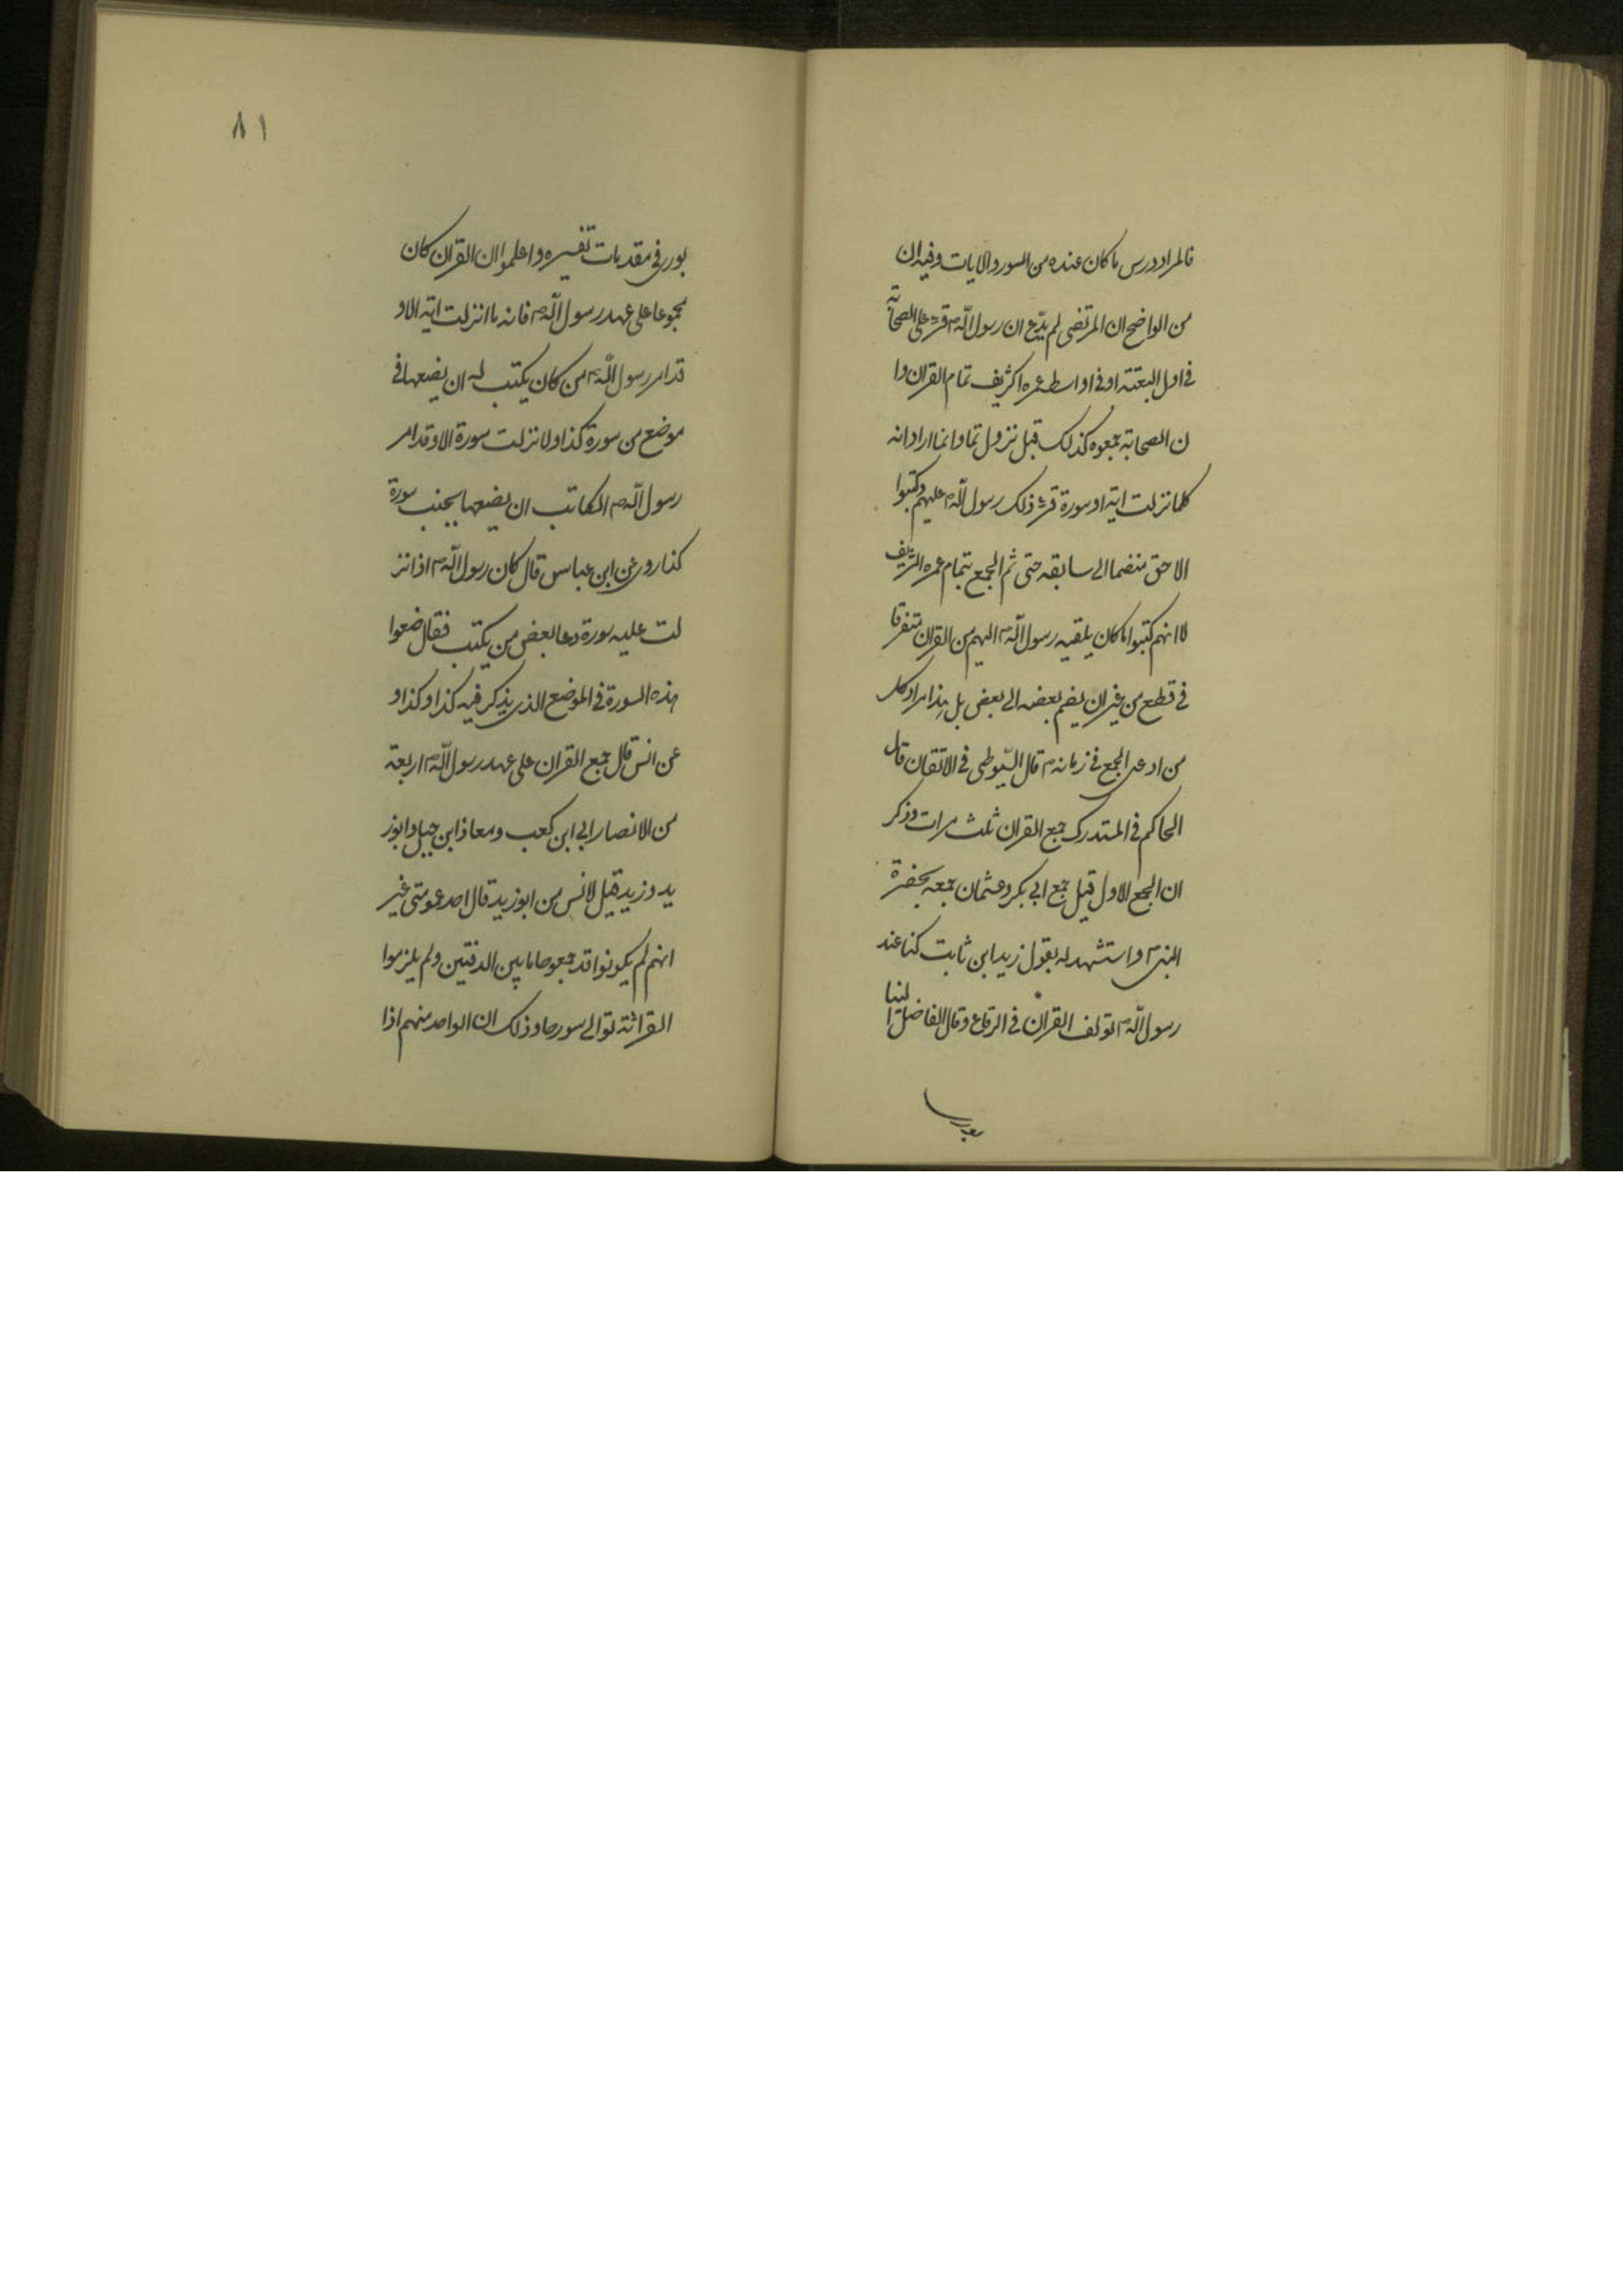 فالمراد درس ما كان عنده من السور والايات وفيه ان
من الواضح ان المرتضى لم يدّع ان رسول اللّه ص قرء على الصحابة
فى اول البعثته او فى اواسط عمره اكثريف تمام القران وا
ن الصحابة جمعوه كذلك قبل نزول تما وانما اراد انه
كلما نزلت اية او سورة قرء ذلك رسول اللّه ص عليهم وكتبوا
الاحق منضما الى سابقه حتى ثم الجمع بتمام عمره الشريف
لا انهم كتبوا ما كان يلقيه رسول اللّه ص اليهم من القران متفرقا
فى قطع من غير ان يضم بعضه الى بعض بل هذا مراد كل
من ادعى الجمع فى زمانه ص قال السّيوطى فى الاتقان قال
الحاكم فى المستدرك جمع القران ثلث مرات وذكر
ان الجمع الاول قبل جمع ابى بكر وعثمان جمعه بحضرة
النبى ص واستشهد له بقول زيد ابن ثابت كنا عند
رسول اللّه ص نولف القران فى الرقاع وقال الفاضل النيسا
بورى
٨١
بورى فى مقدمات تفسيره واعلموا ان القران كان
مجموعا على عهد رسول اللّه ص فانه ما انزلت اية الا و
قد امر رسول اللّه ص من كان يكتب له ان يضعها فى
موضع من سورة كذا ولا نزلت سورة الا وقد امر
رسول اللّه ص الكاتب ان يضعها بجنب سورة
كذا روى عن ابن عباس قال كان رسول اللّه ص اذا نز
لت عليه سورة دعا بعض من يكتب فقال ضعوا
هذه السورة فى الموضع الذى يذكر فيه كذا وكذا و
عن انس قال جمع القران على عهد رسول اللّه ص اربعة
من الانصار ابى ابن كعب ومعاذ ابن جبل وابوز
يد وزيد قيل لانس من ابوزيد قال احد عمومتى غير
انهم لم يكونوا قد جمعوها ما بين الدفتين ولم يلزموا
القرائة توالى سورها وذلك ان الواحد منهم اذا